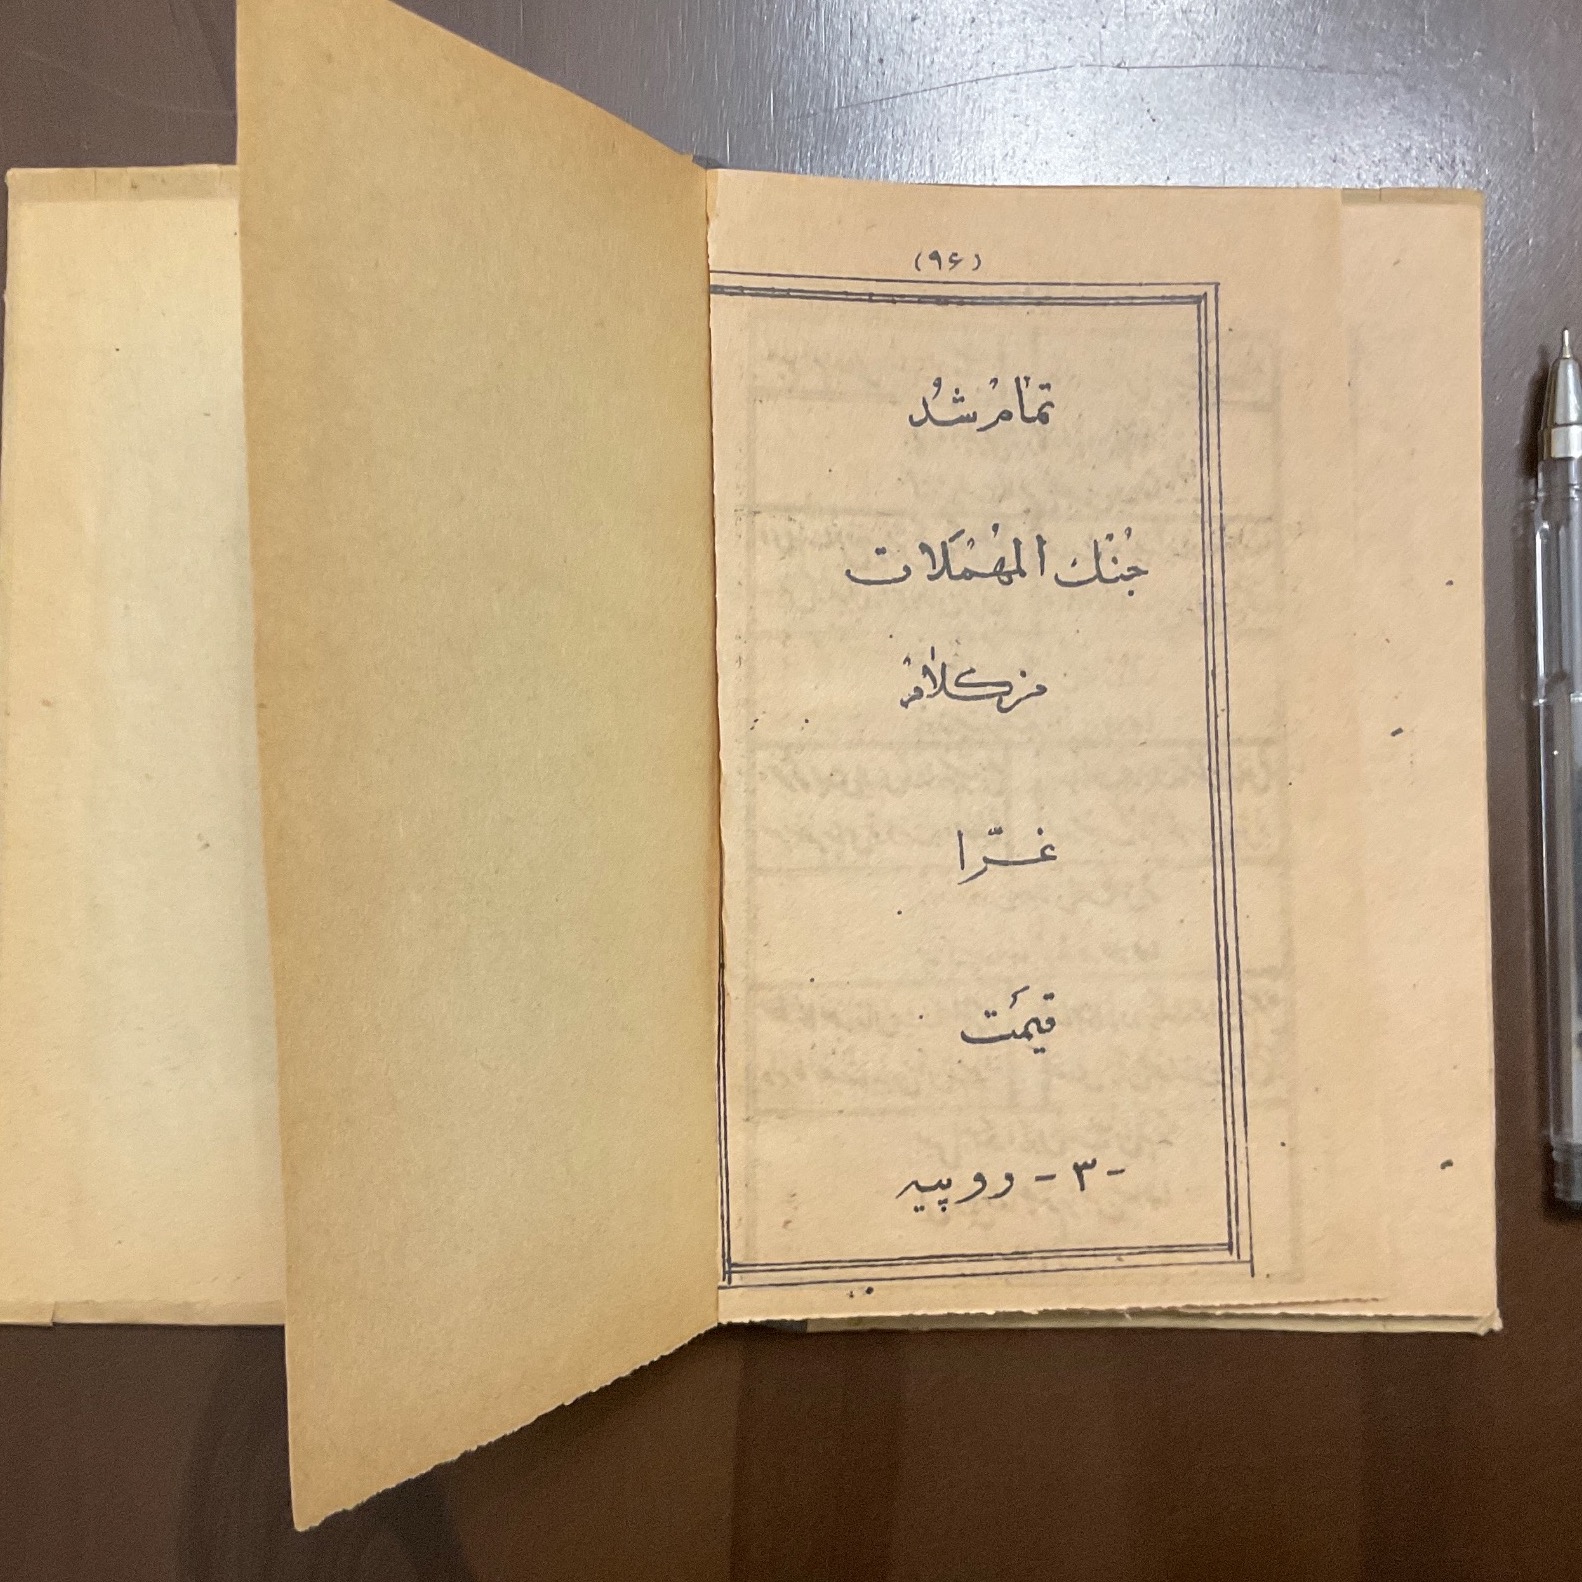 (۹۶)
تمام شد
جنك المهملات
من كلام
غرّا
قيمت
-۳- روپيه